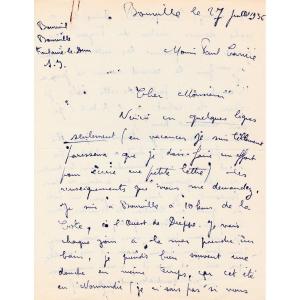 Bonville le 27 juillet 1936
Bourville
Fontaine-le-Dun
S. I.
Monsieur Paul Carrière
Cher Monsieur
Voici en quelques lignes
seulement (en vacances je suis tellement
paresseux que je dois faire un effort
pour écrire une petite lettre) les
renseignements que vous me demandez.
Je suis à Bonville à 10 kms de la
Côte, à l'Ouest de Dieppe. Je vais
chaque jour à la mer prendre un
bain, je prends bien souvent une
douche en même temps, car cet été
en Normandie (je ne sais pas si vous